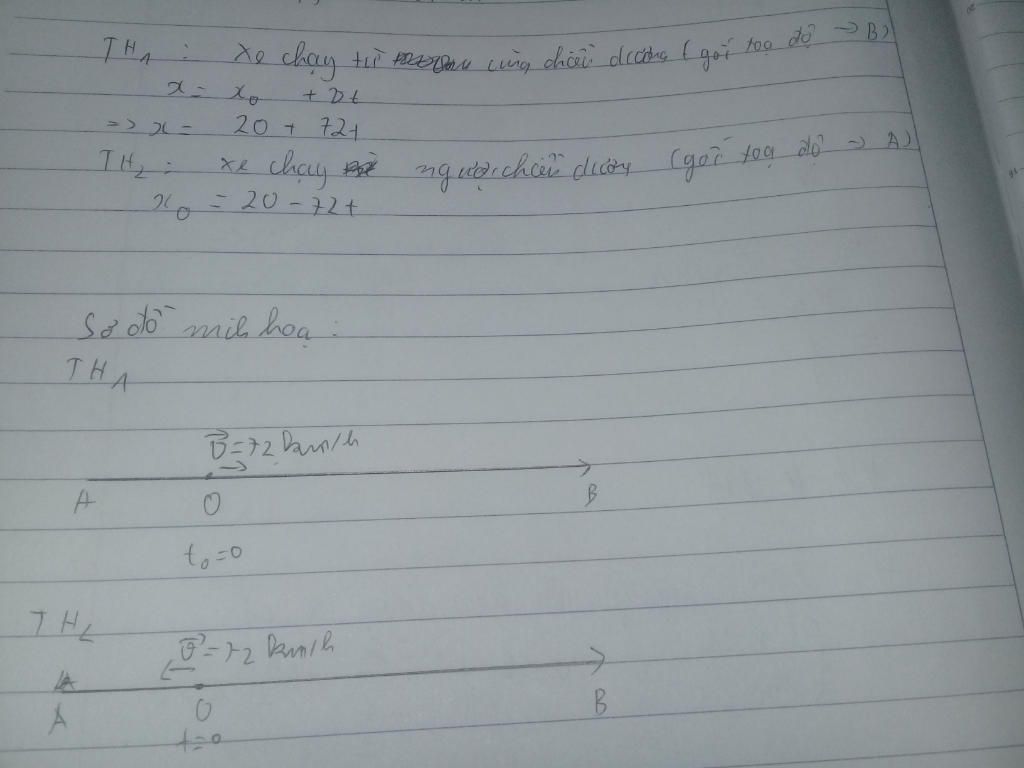 TH1 : xe chạy từ cùng chiều dương (gốc toạ độ → B)
x = x0 + vt
=> x = 20 + 72t
TH2 : xe chạy ngược chiều dương (gốc toạ độ → A)
x0 = 20 - 72t
Sơ đồ minh hoạ :
TH1
v = 72 km/h
A O B
t0 = 0
TH2
v = 72 km/h
A O B
t=0